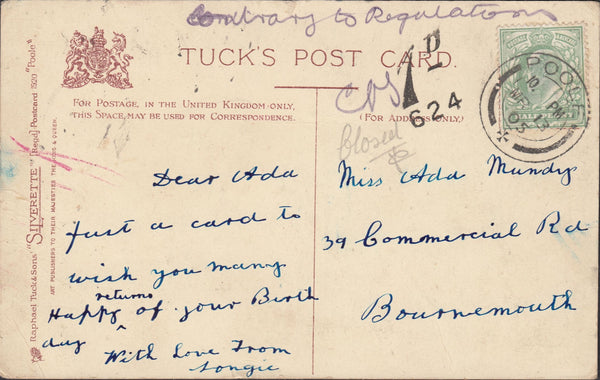 Contrary to Regulations
TUCK'S POST CARD.
FOR POSTAGE, IN THE UNITED KINGDOM ONLY,
THIS SPACE, MAY BE USED FOR CORRESPONDENCE.
(FOR ADDRESS ONLY.)
1D
624
POOLE
10 PM
03
HALFPENNY
closed
Raphael Tuck & Sons' "SILVERETTE" [Regd] Postcard 1520 "Poole"
ART PUBLISHERS TO THEIR MAJESTIES THE KING & QUEEN.
Dear Ada
Just a card to
wish you many
returns
Happy ^ of your Birth
day With Love From
Miss Ada Mundy
39 Commercial Rd
Bournemouth